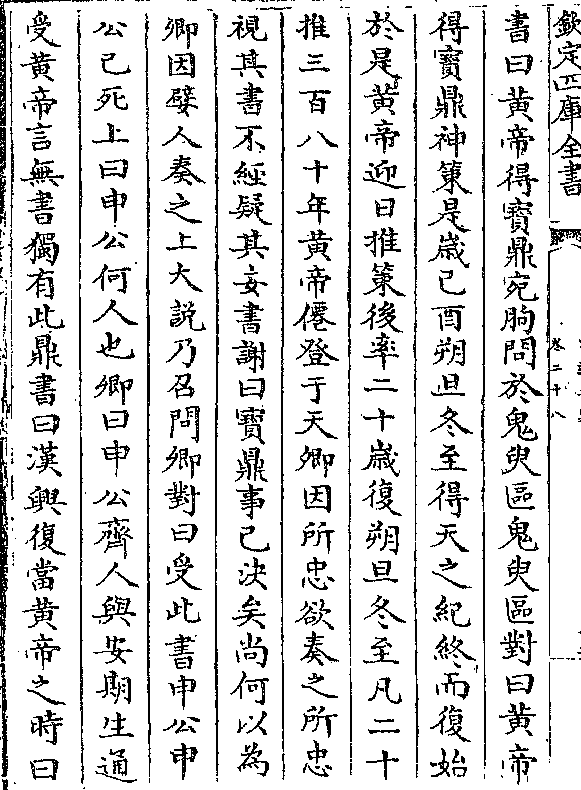 欽定四庫全書
卷二十八
書曰黄帝得寳鼎宛朐問於鬼臾區鬼臾區對曰黄帝
得寳鼎神筴是嵗己酉朔旦冬至得天之紀終而復始
於是黄帝迎日推筴後率二十嵗復朔旦冬至凡二十
推三百八十年黄帝僊登于天卿因所忠欲奏之所忠
視其書不經疑其妄書謝曰寳鼎事已決矣尚何以為
卿因嬖人奏之上大説乃召問卿對曰受此書申公申
公已死上曰申公何人也卿曰申公齊人與安期生通
受黄帝言無書獨有此鼎書曰漢興復當黄帝之時曰